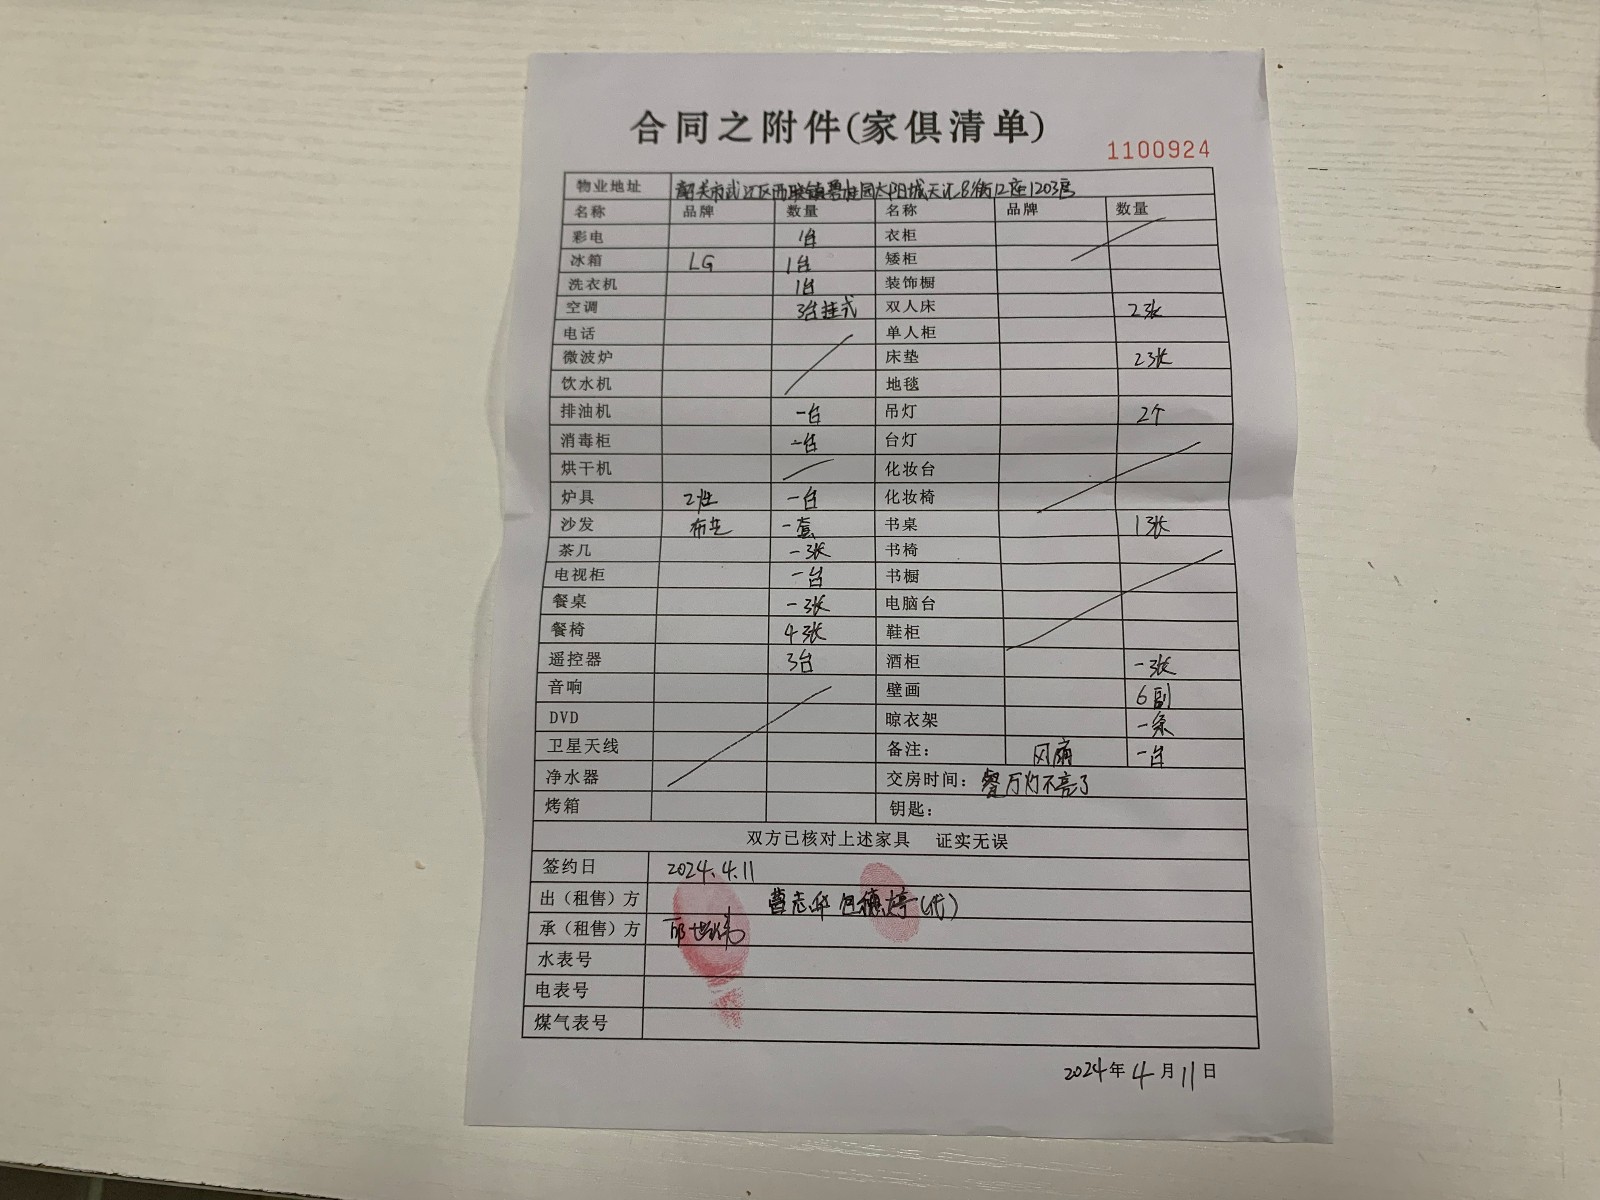 合同之附件(家俱清单)
1100924
物业地址 韶关市武江区西联镇碧桂园太阳城天汇8街12座1203房
名称 品牌 数量 名称 品牌 数量
彩电 1台 衣柜
冰箱 LG 1台 矮柜
洗衣机 1台 装饰橱
空调 3台挂式 双人床 2张
电话 单人柜
微波炉 床垫 2张
饮水机 地毯
排油机 一台 吊灯 2个
消毒柜 一台 台灯
烘干机 化妆台
炉具 一台 化妆椅
沙发 布艺 一套 书桌 1张
茶几 一张 书椅
电视柜 一台 书橱
餐桌 一张 电脑台
餐椅 4张 鞋柜
遥控器 3台 酒柜 一张
音响 壁画 6副
DVD 晾衣架 一条
卫星天线 备注: 风扇 一台
净水器 交房时间: 餐厅灯不亮了
烤箱 钥匙:
双方已核对上述家具 证实无误
签约日 2024.4.11
出（租售）方 曹志华 (代)
承（租售）方
水表号
电表号
煤气表号
2024年4月11日